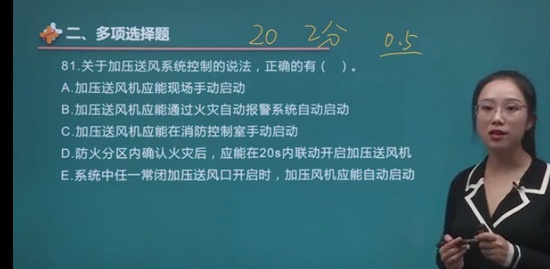 二、多项选择题 20 2分 0.5
81.关于加压送风系统控制的说法，正确的有（ ）。
A.加压送风机应能现场手动启动
B.加压送风机应能通过火灾自动报警系统自动启动
C.加压送风机应能在消防控制室手动启动
D.防火分区内确认火灾后，应能在20s内联动开启加压送风机
E.系统中任一常闭加压送风口开启时，加压风机应能自动启动